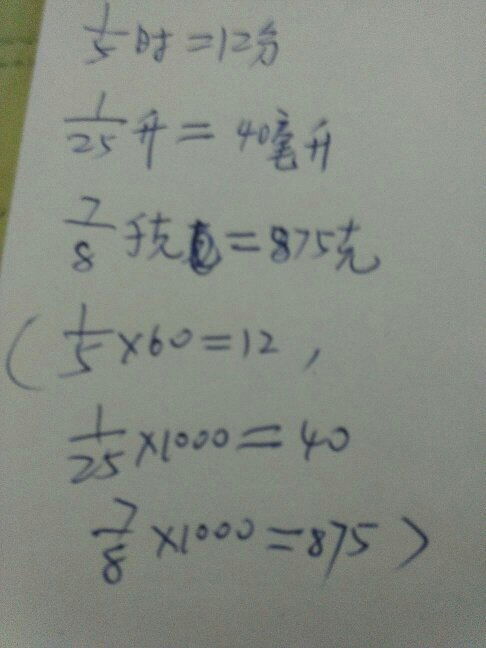 1/5时=12分
1/25升=40毫升
7/8千克=875克
(1/5×60=12,
1/25×1000=40
7/8×1000=875)